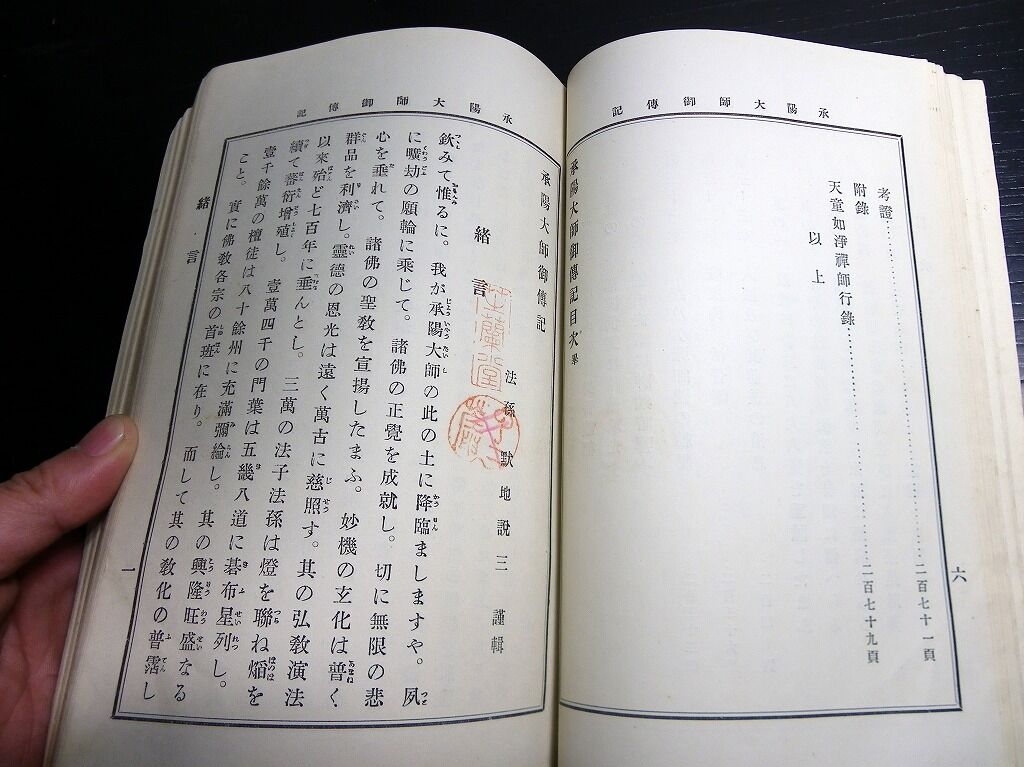 承陽大師御傳記
考證……二百七十一頁
附錄
天童如淨禪師行錄……二百七十九頁
以上
承陽大師御傳記目次畢
六
承陽大師御傳記
承陽大師御傳記
緖言
法孫 默地説三 謹輯
欽みて惟るに。我が承陽大師の此の土に降臨ましますや。夙
に曠劫の願輪に乘じて。諸佛の正覺を成就し。切に無限の悲
心を垂れて。諸佛の聖敎を宣揚したまふ。妙機の玄化は普く
群品を利濟し。靈德の恩光は遠く萬古に慈照す。其の弘敎演法
以來殆ど七百年に垂んとし。三萬の法子法孫は燈を聯ね熖を
續て蕃衍增殖し。壹萬四千の門葉は五畿八道に碁布星列し。
壹千餘萬の檀徒は八十餘州に充滿彌綸し。其の興隆旺盛なる
こと。實に佛敎各宗の首班に在り。而して其の敎化の普霑し
緖言
一